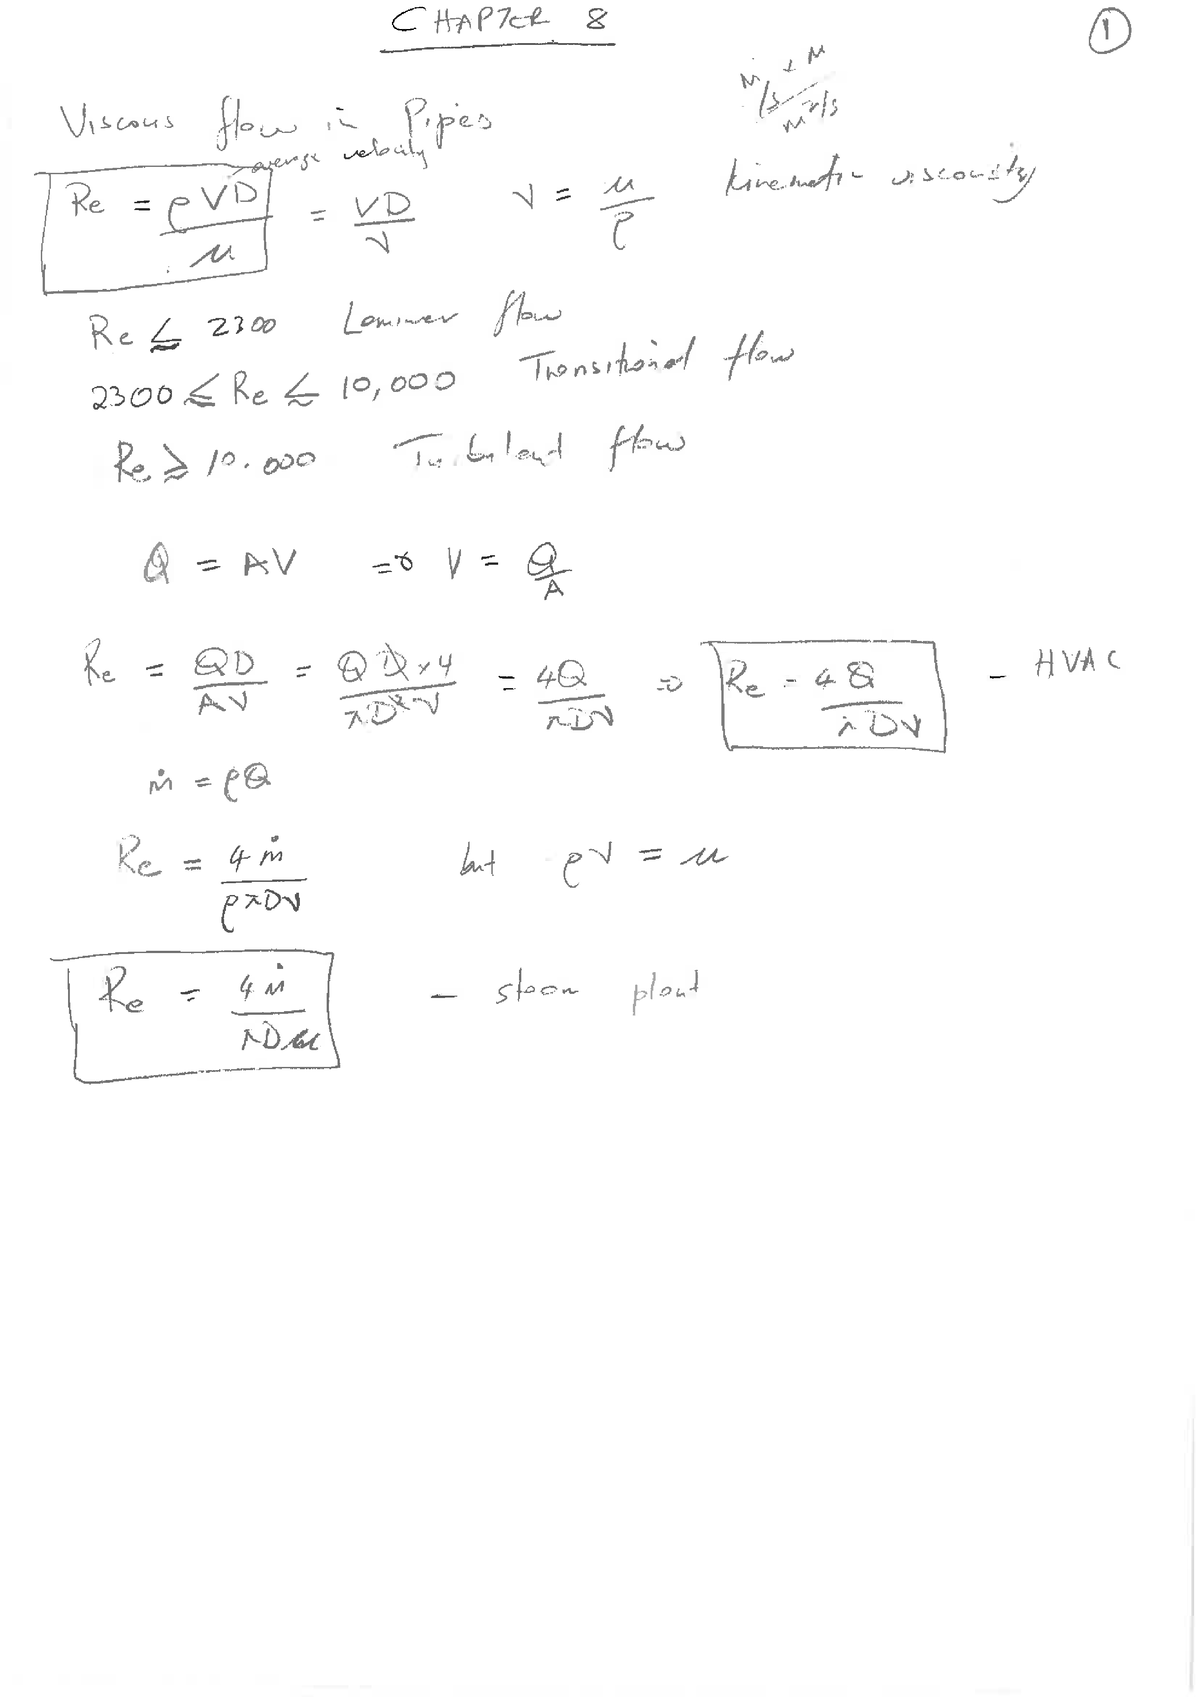 CHAPTER 8
1
Viscous flow in Pipes
m/s × m / m²/s
average velocity
Re = ρVD/μ = VD/ν   ν = μ/ρ   kinematic viscousity
Re ≲ 2300 Laminar flow
2300 ≲ Re ≲ 10,000 Transitional flow
Re ≳ 10.000 Turbulent flow
Q = AV ⇒ V = Q/A
Re = QD/Aν = QD×4/πD²ν = 4Q/πDν ⇒ Re = 4Q/πDν - HVAC
ṁ = ρQ
Re = 4ṁ/ρπDν   but ρν = μ
Re = 4ṁ/πDμ - steam plant